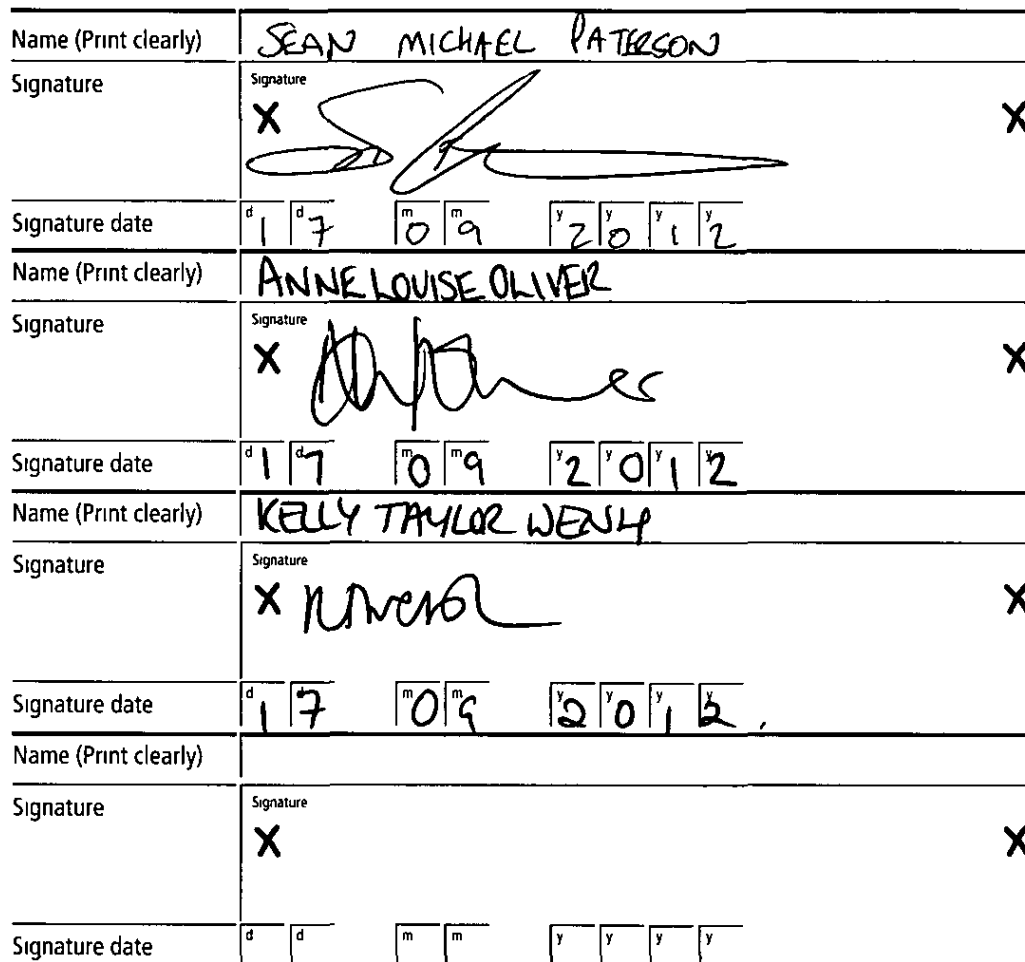 Name (Print clearly) SEAN MICHAEL PATERSON
Signature Signature
X X
Signature date d 1 d 7 m 0 m 9 y 2 y 0 y 1 y 2
Name (Print clearly) ANNE LOUISE OLIVER
Signature Signature
X X
Signature date d 1 d 7 m 0 m 9 y 2 y 0 y 1 y 2
Name (Print clearly) KELLY TAYLOR
Signature Signature
X X
Signature date d 1 d 7 m 0 m 9 y 2 y 0 y 1 y 2
Name (Print clearly)
Signature Signature
X X
Signature date d d m m y y y y